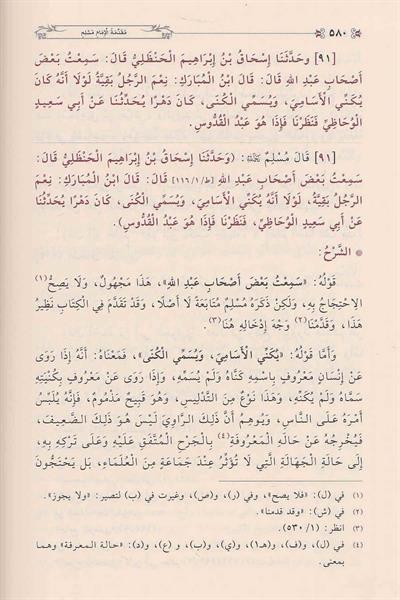 ٥٨٠
مُقَدِّمَةُ الإِمَامِ مُسْلِمٍ
[٩١] وحَدَّثَنَا إِسْحَاقُ بْنُ إِبْرَاهِيمَ الْحَنْظَلِيُّ قَالَ: سَمِعْتُ بَعْضَ
أَصْحَابِ عَبْدِ اللهِ قَالَ: قَالَ ابْنُ الْمُبَارَكِ: نِعْمَ الرَّجُلُ بَقِيَّةُ لَوْلَا أَنَّهُ كَانَ
يُكَنِّي الْأَسَامِيَ، وَيُسَمِّي الْكُنَى، كَانَ دَهْرًا يُحَدِّثُنَا عَنْ أَبِي سَعِيدٍ
الْوُحَاظِيِّ فَنَظَرْنَا فَإِذَا هُوَ عَبْدُ الْقُدُّوسِ.
[٩١] قَالَ مُسْلِمٌ ﵀: (وَحَدَّثَنَا إِسْحَاقُ بْنُ إِبْرَاهِيمَ الْحَنْظَلِيُّ قَالَ:
سَمِعْتُ بَعْضَ أَصْحَابِ عَبْدِ اللهِ [ط/١/١١٦] قَالَ: قَالَ ابْنُ الْمُبَارَكِ: نِعْمَ
الرَّجُلُ بَقِيَّةُ، لَوْلَا أَنَّهُ يُكَنِّي الْأَسَامِيَ، وَيُسَمِّي الْكُنَى، كَانَ دَهْرًا يُحَدِّثُنَا
عَنْ أَبِي سَعِيدٍ الْوُحَاظِيِّ، فَنَظَرْنَا فَإِذَا هُوَ عَبْدُ الْقُدُّوسِ).
* الشَّرْحُ:
قَوْلُهُ: «سَمِعْتُ بَعْضَ أَصْحَابِ عَبْدِ اللهِ»، هَذَا مَجْهُولٌ، وَلَا يَصِحُّ(١)
الِاحْتِجَاجُ بِهِ، وَلَكِنْ ذَكَرَهُ مُسْلِمٌ مُتَابَعَةً لَا أَصْلًا، وَقَدْ تَقَدَّمَ فِي الْكِتَابِ نَظِيرُ
هَذَا، وَقَدَّمْنَا(٢) وَجْهَ إِدْخَالِهِ هُنَا(٣).
وَأَمَّا قَوْلُهُ: «يُكَنِّي الْأَسَامِيَ، وَيُسَمِّي الْكُنَى»، فَمَعْنَاهُ: أَنَّهُ إِذَا رَوَى
عَنْ إِنْسَانٍ مَعْرُوفٍ بِاسْمِهِ كَنَّاهُ وَلَمْ يُسَمِّهِ، وَإِذَا رَوَى عَنْ مَعْرُوفٍ بِكُنْيَتِهِ
سَمَّاهُ وَلَمْ يُكَنِّهِ، وَهَذَا نَوْعٌ مِنَ التَّدْلِيسِ، وَهُوَ قَبِيحٌ مَذْمُومٌ، فَإِنَّهُ يُلَبِّسُ
أَمْرَهُ عَلَى النَّاسِ، وَيُوهِمُ أَنَّ ذَلِكَ الرَّاوِيَ لَيْسَ هُوَ ذَلِكَ الضَّعِيفَ،
فَيُخْرِجُهُ عَنْ حَالِهِ الْمَعْرُوفَةِ(٤) بِالْجَرْحِ الْمُتَّفَقِ عَلَيْهِ وَعَلَى تَرْكِهِ بِهِ،
إِلَى حَالَةِ الْجَهَالَةِ الَّتِي لَا تُؤَثِّرُ عِنْدَ جَمَاعَةٍ مِنَ الْعُلَمَاءِ، بَلْ يَحْتَجُّونَ
(١) في (ل): «فلا يصح»، وفي (ر)، و(ص)، وغيرت في (ب) لتصير: «ولا يجوز».
(٢) في (ش): «وقد قدمنا».
(٣) انظر: (١/ ٥٣٠).
(٤) في (ل)، و(ف)، و(هـ١)، و(ي)، و(ب)، و (ع)، و(د): «حالة المعرفة» وهما
بمعنى.